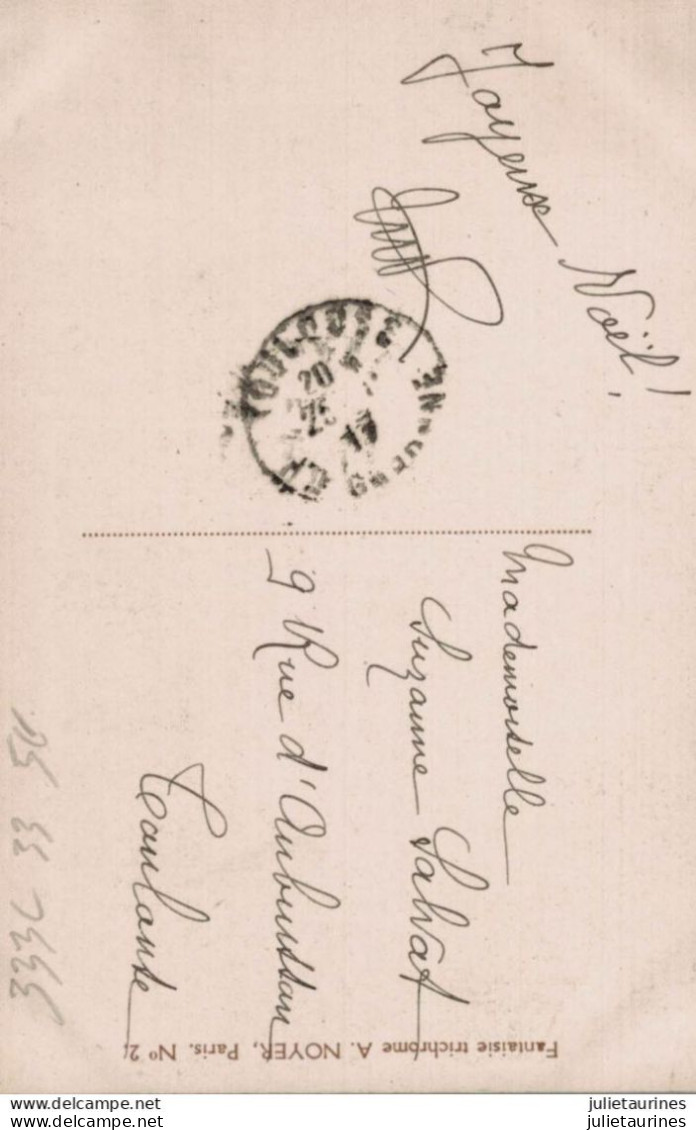 Joyeuse Noël!
TOULOUSE
20
25
Mademoiselle
Suzanne Salvat
9 Rue d'Aubuisson
Toulouse
Fantaisie trichrome A. NOYER, Paris. Nº 2
delcampe.net
julietaurines
delcampe.net
julietaurines